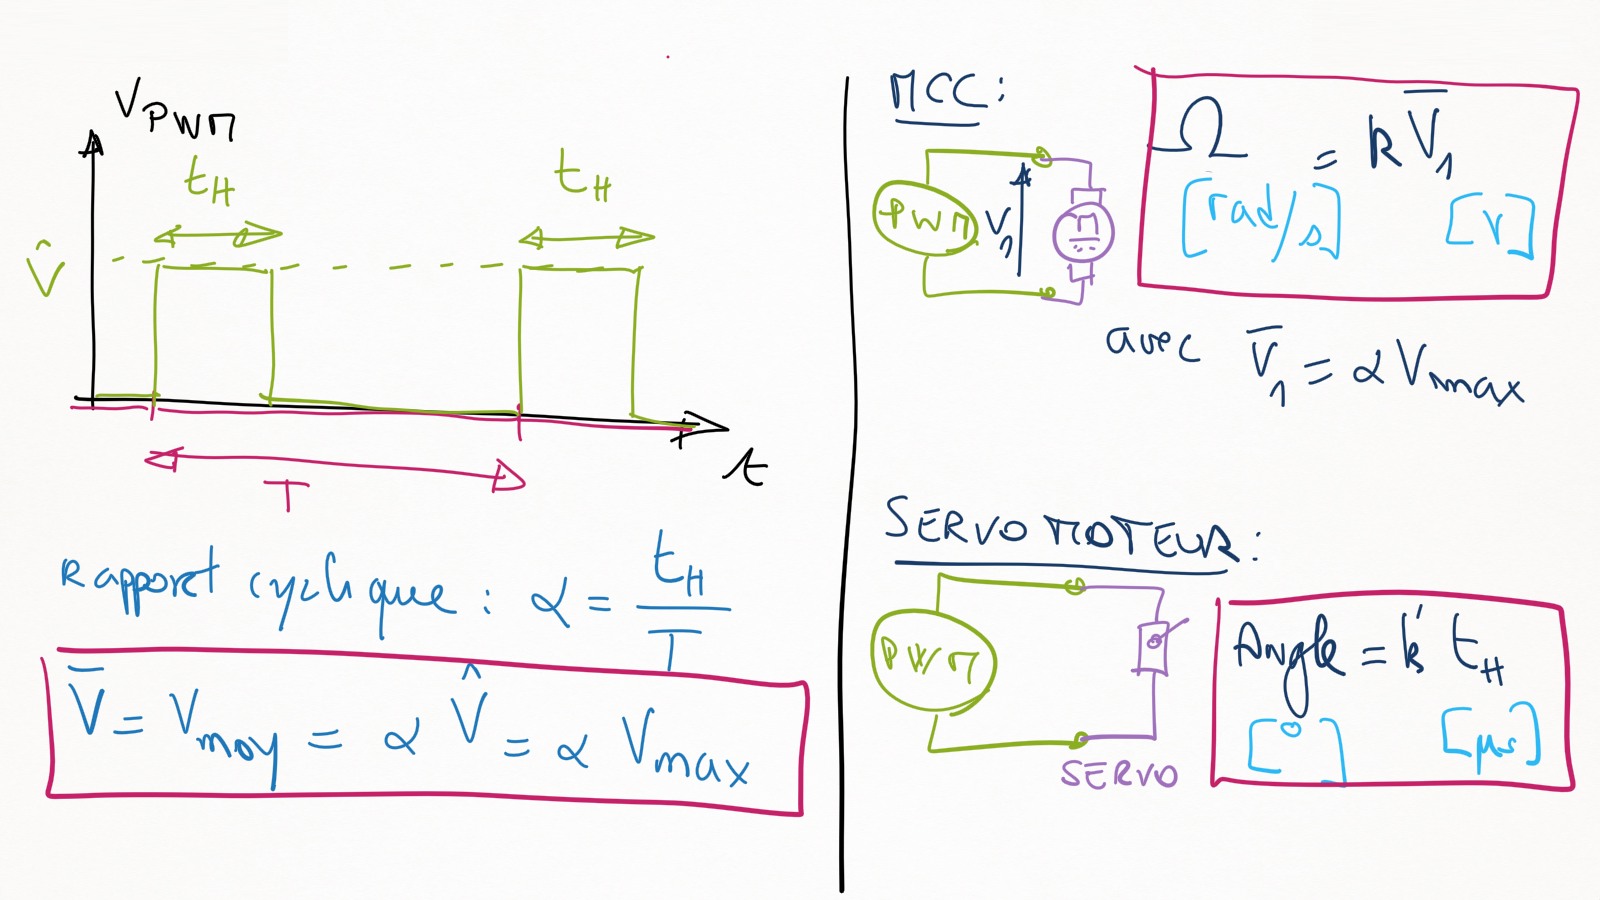 V_PWM
t_H
t_H
V̂
t
T
Rapport cyclique : α = t_H / T
V̄ = V_moy = α V̂ = α V_max
MCC :
PWM
V_1
M
Ω = k V̄_1
[rad/s] [V]
avec V̄_1 = α V_max
SERVO MOTEUR :
PWM
SERVO
Angle = k' t_H
[°] [μs]